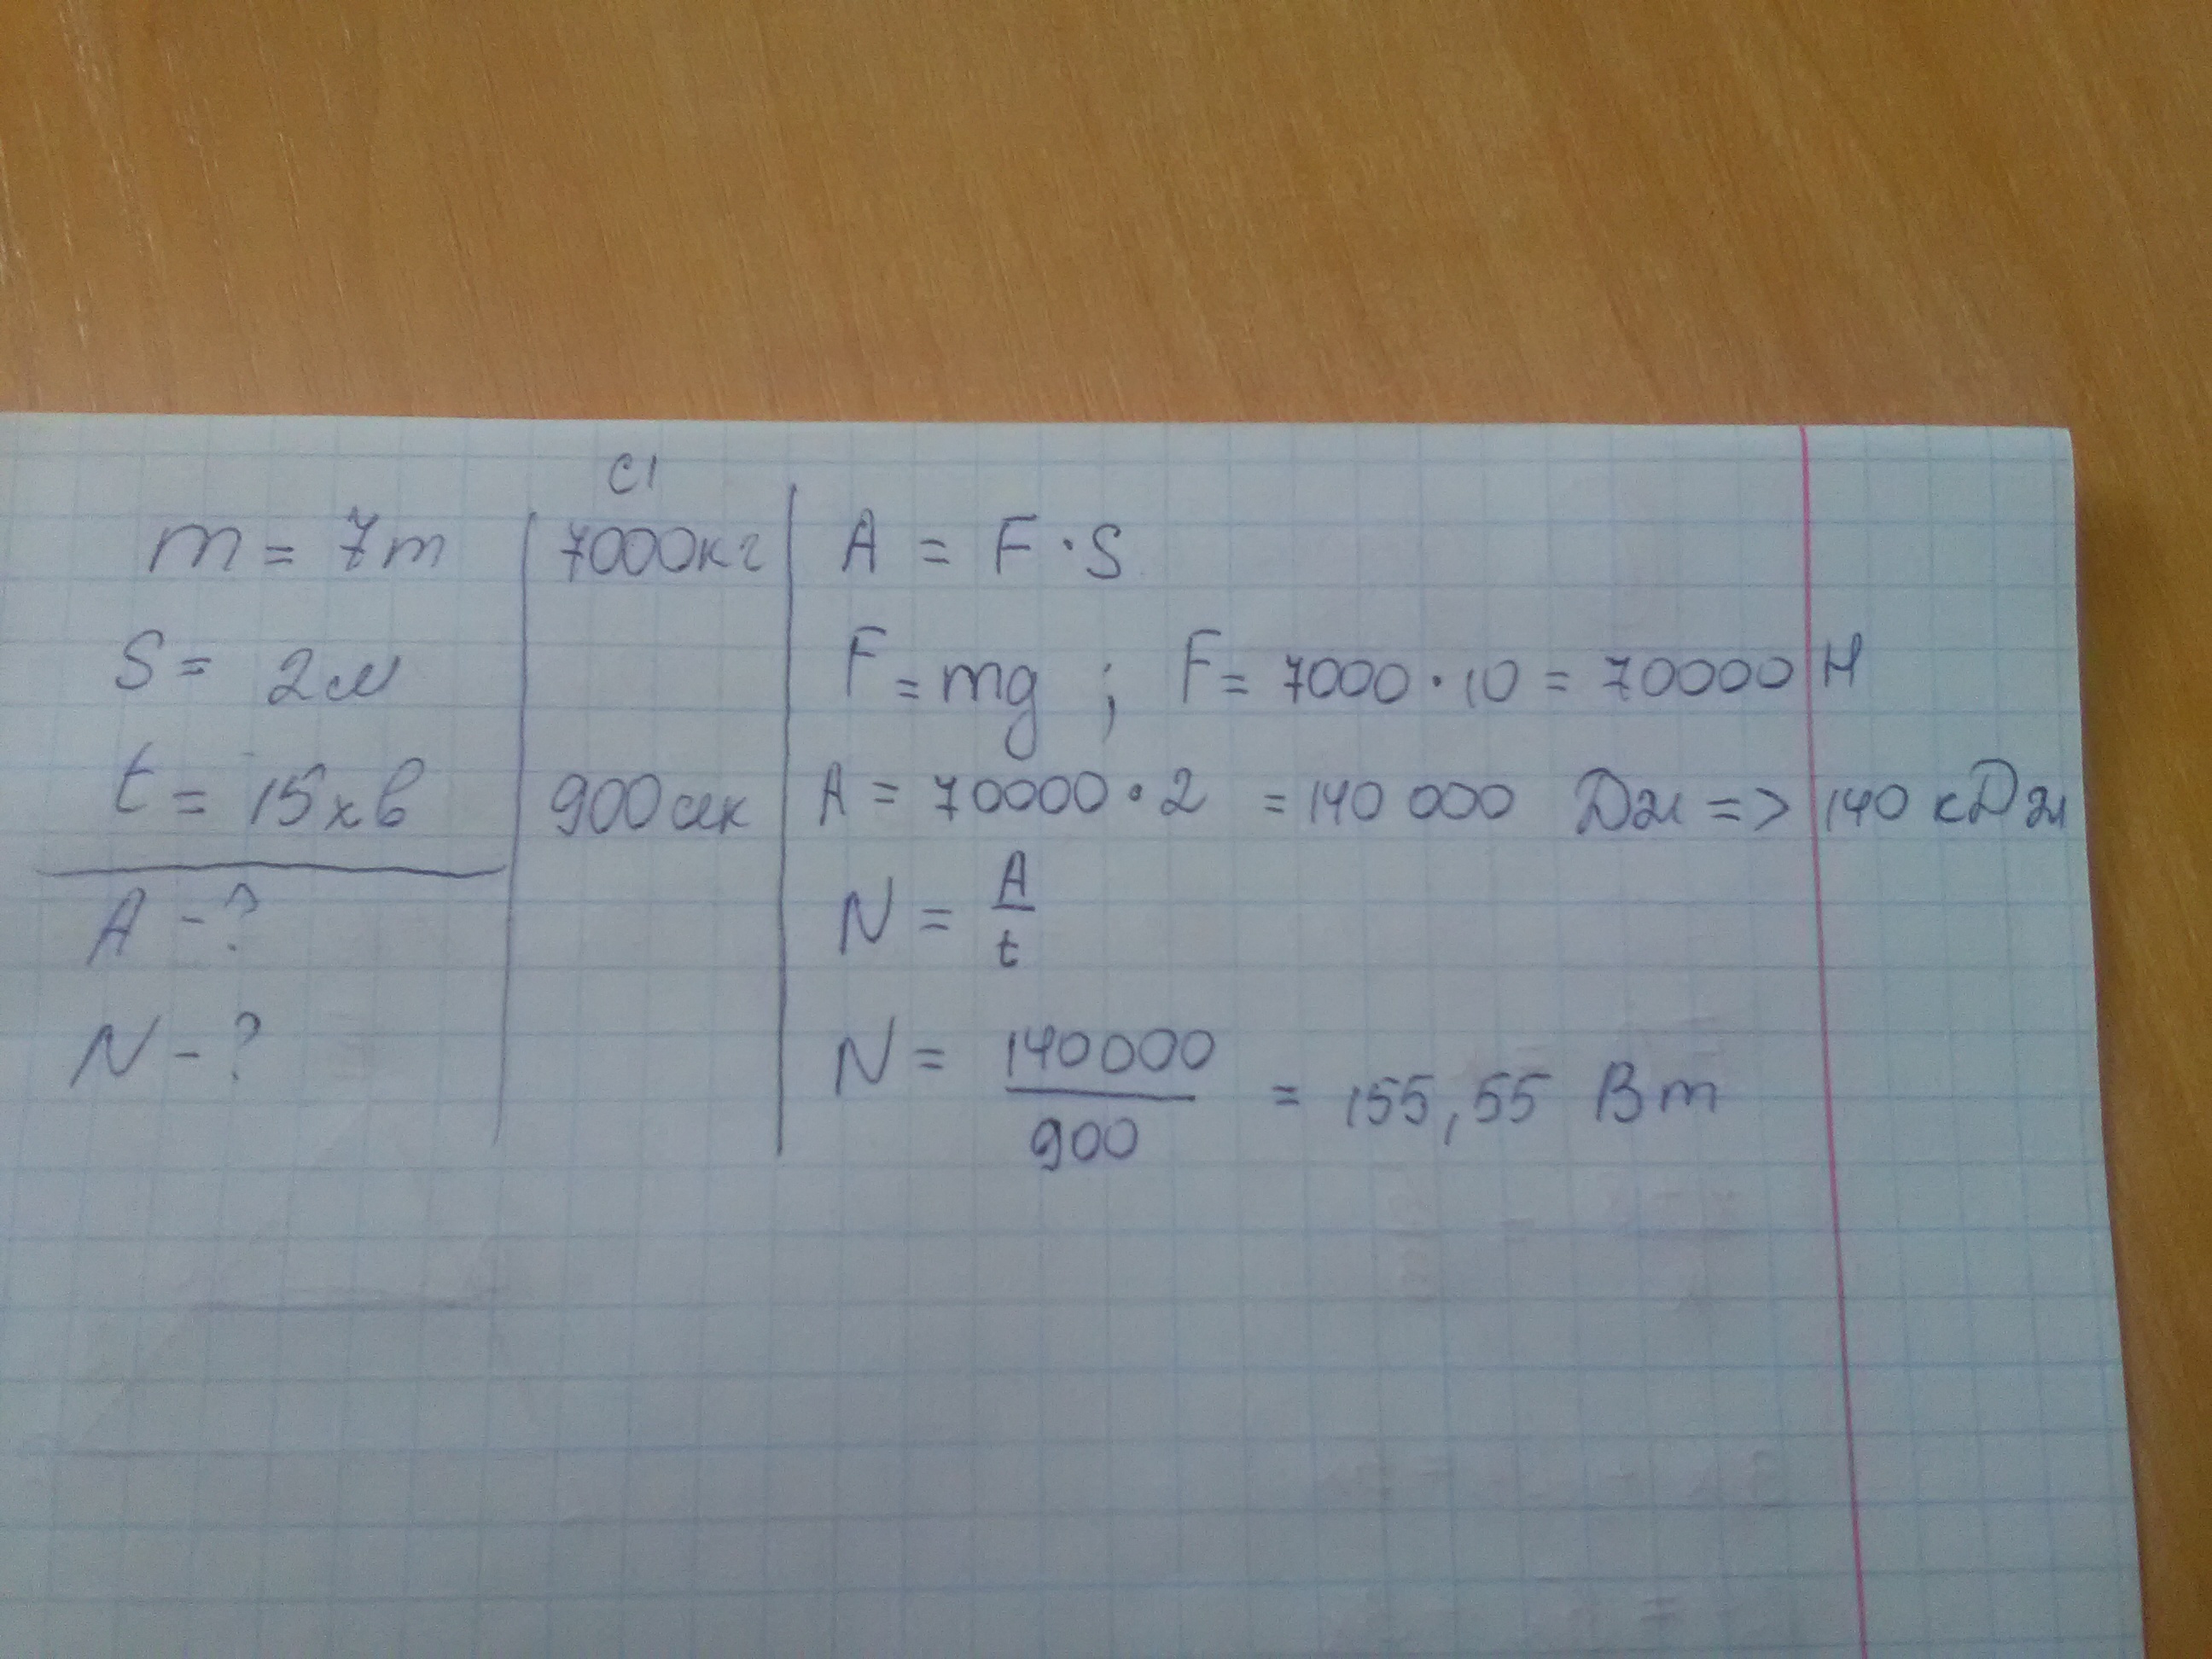 СІ
m = 7т | 7000кг | A = F · S
S = 2м
F = mg ; F = 7000 · 10 = 70000 Н
t = 15хв | 900сек | A = 70000 · 2 = 140 000 Дж => 140 кДж
A - ?
N = A/t
N - ?
N = 140000/900 = 155,55 Вт